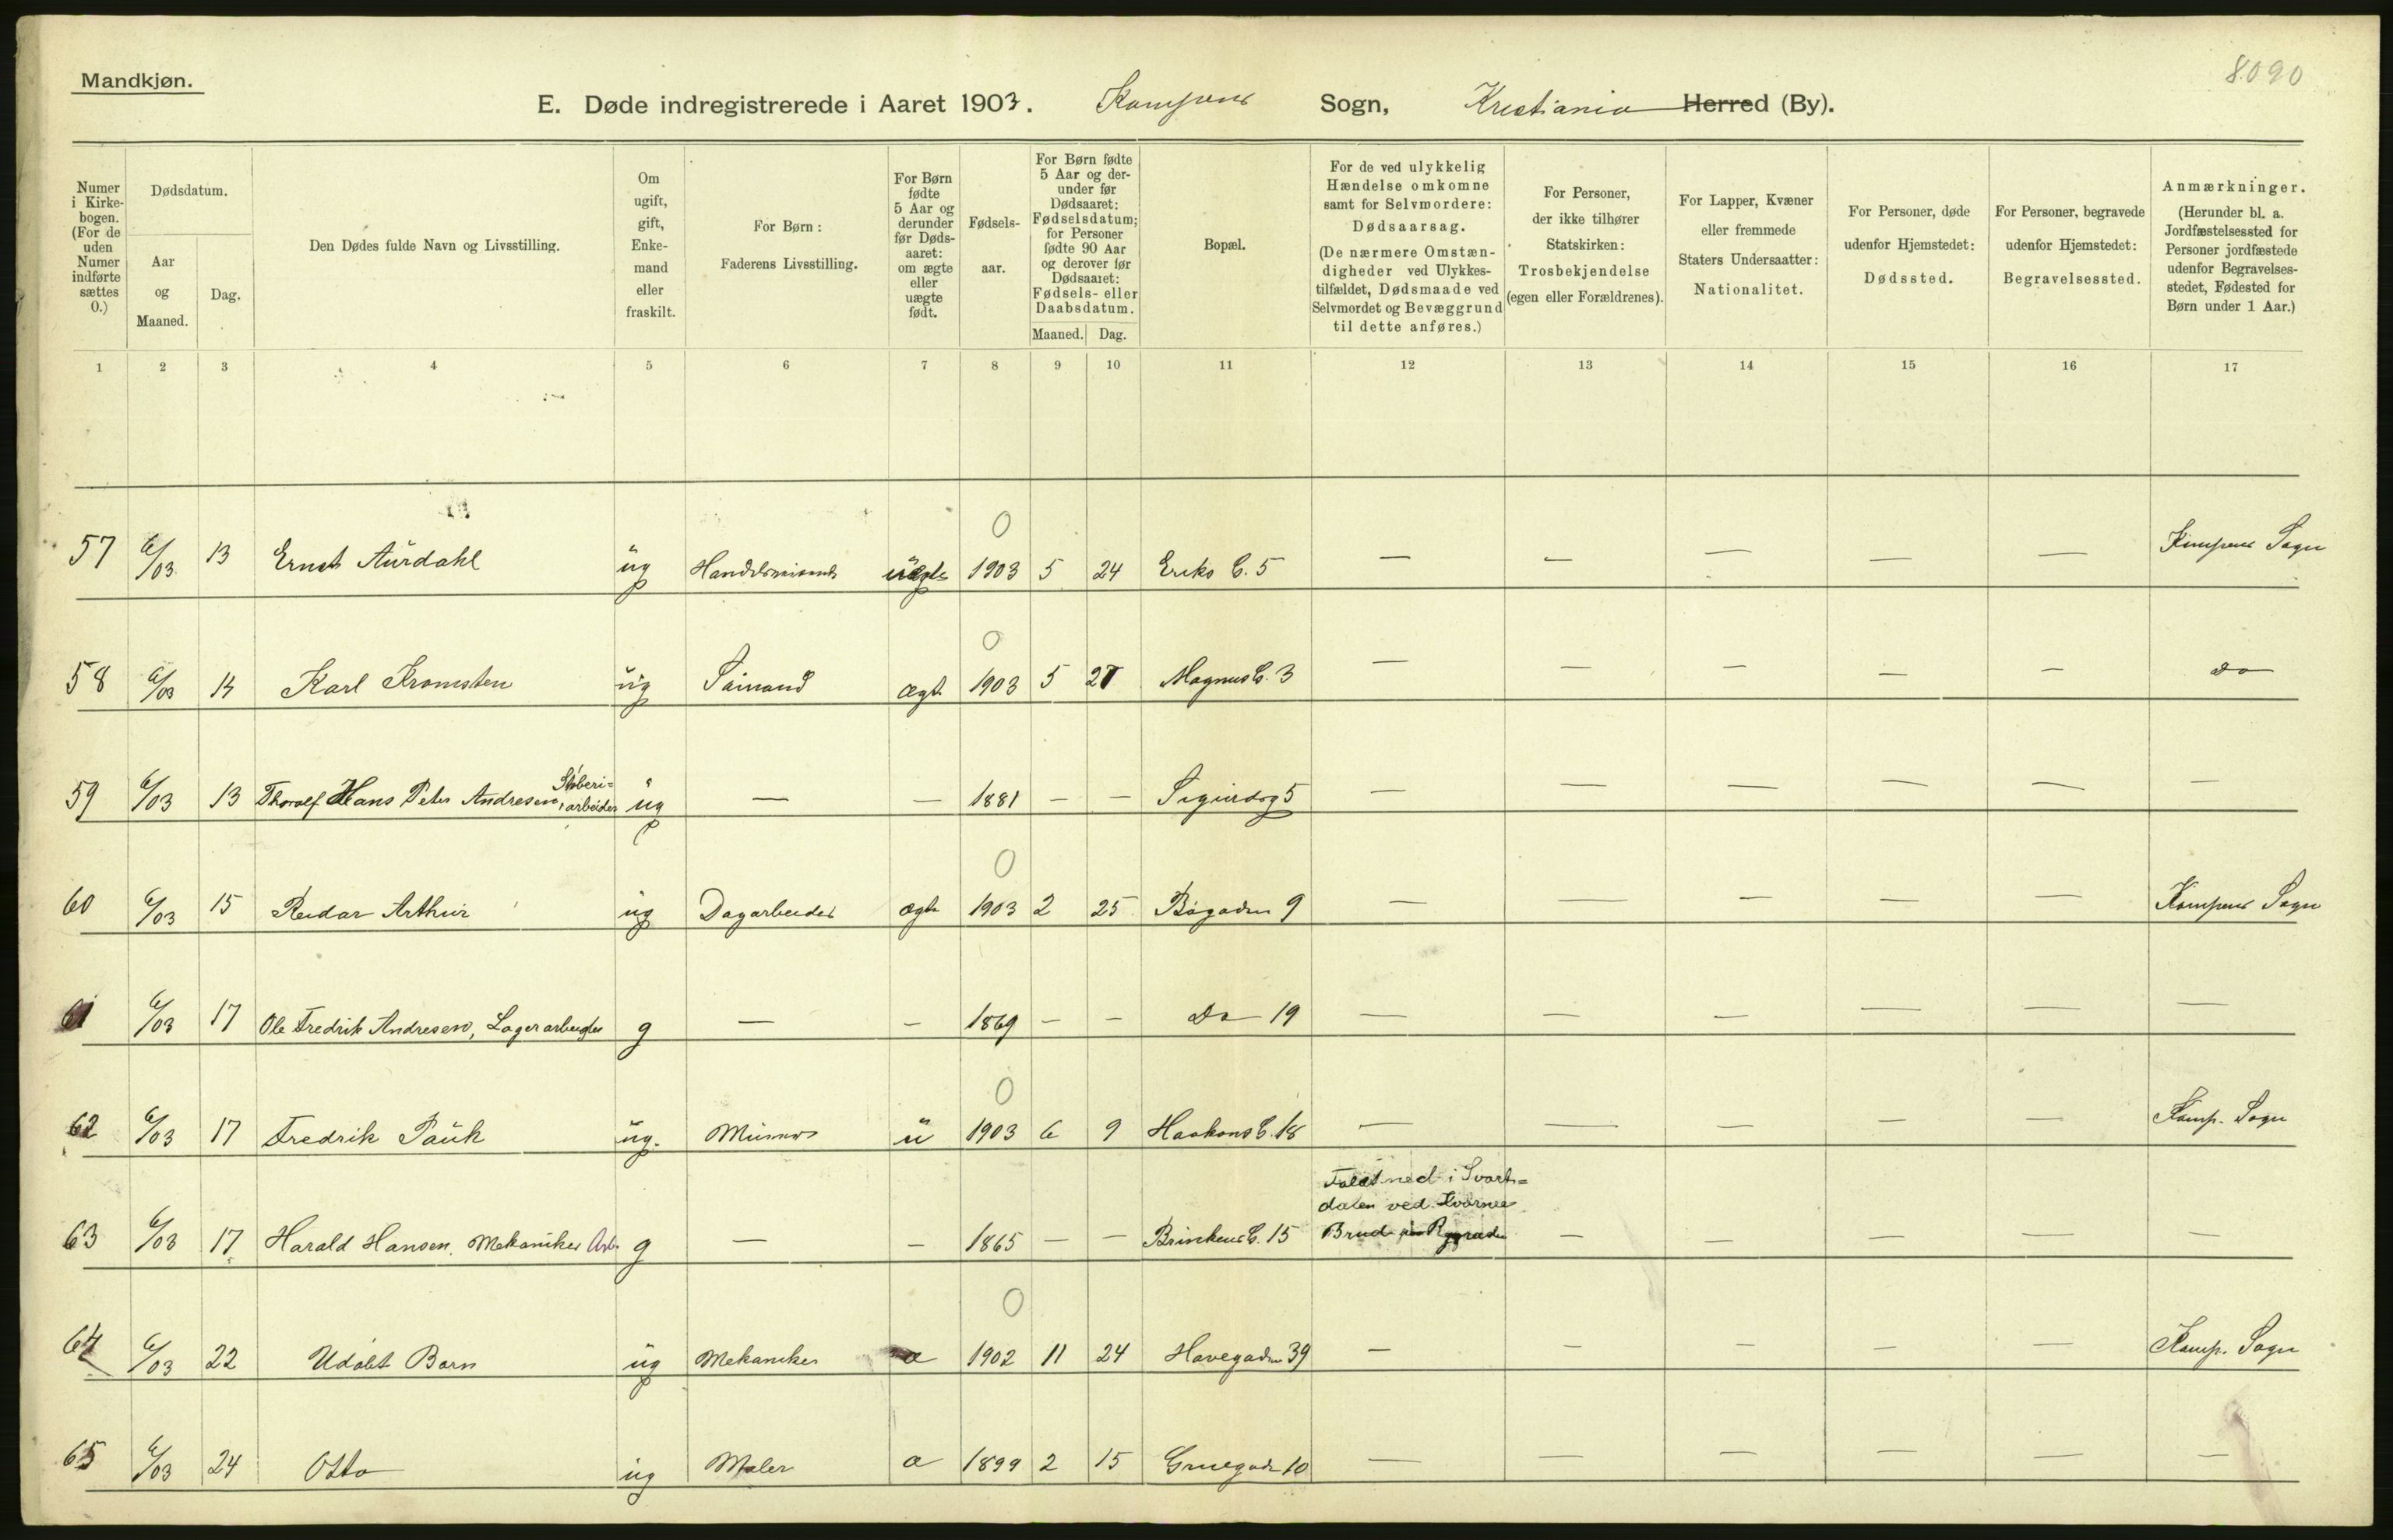 Mandkjøn.
8090
E. Døde indregistrerede i Aaret 1903. Kampens Sogn, Kristiania Herred (By).
Numer i Kirke-bogen. (For de uden Numer indførte sættes 0.)
Dødsdatum.
Aar og Maaned.
Dag.
Den Dødes fulde Navn og Livsstilling.
Om ugift, gift, Enke-mand eller fraskilt.
For Børn: Faderens Livsstilling.
For Børn fødte 5 Aar og derunder før Døds-aaret: om ægte eller uægte født.
Fødsels-aar.
For Børn fødte 5 Aar og der-under før Dødsaaret: Fødselsdatum; for Personer fødte 90 Aar og derover før Dødsaaret: Fødsels- eller Daabsdatum.
Maaned. Dag.
Bopæl.
For de ved ulykkelig Hændelse omkomne samt for Selvmordere: Dødsaarsag. (De nærmere Omstæn-digheder ved Ulykkes-tilfældet, Dødsmaade ved Selvmordet og Bevæggrund til dette anføres.)
For Personer, der ikke tilhører Statskirken: Trosbekjendelse (egen eller Forældrenes).
For Lapper, Kvæner eller fremmede Staters Undersaatter: Nationalitet.
For Personer, døde udenfor Hjemstedet: Dødssted.
For Personer, begravede udenfor Hjemstedet: Begravelsessted.
Anmærkninger. (Herunder bl. a. Jordfæstelsessted for Personer jordfæstede udenfor Begravelses-stedet, Fødested for Børn under 1 Aar.)
1 2 3 4 5 6 7 8 9 10 11 12 13 14 15 16 17
0
57 6/03 13 Ernst Aurdahl ug Handelsmand uægte 1903 5 24 Eriks G. 5 — — — — — Kampens Sogn
0
58 6/03 14 Karl Kromsten ug ægt 1903 5 27 Magnus G. 3 — — — — — Do
59 6/03 13 Thoralf Hans Peter Andresen, Støberi=arbeider ug — — 1881 — — Sigurdsg 5 — — — — — —
0
60 6/03 15 Reidar Arthur ug Dagarbeider ægte 1903 2 25 Bøgaden 9 — — — — — Kampens Sogn
61 6/03 17 Ole Fredrik Andresen, Lagerarbeider g — — 1869 — — Do 19 — — — — — —
0
62 6/03 17 Fredrik Pauk ug. Murer u 1903 6 9 Haakons G. 18 — — — — — Kamp. Sogn
Faldt ned i Svart=
dalen ved Kværner
63 6/03 17 Harald Hansen, Mekaniker Arb. g — — 1865 — — Brinkens G. 15 Brud paa Rygraden — — — — —
0
64 6/03 22 Udøbt Barn ug Mekaniker æ 1902 11 24 Havegaden 39 — — — — — Kamp. Sogn
65 6/03 24 Otto ug Maler æ 1899 2 15 Gruegade 10 — — — — — —